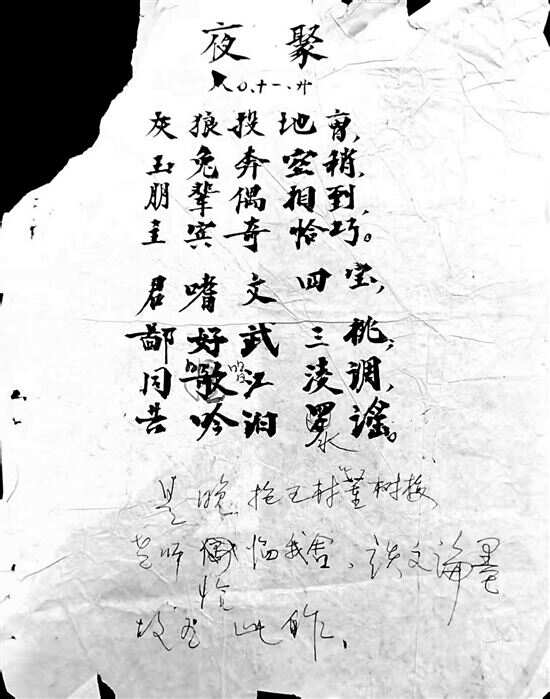 夜聚
八〇.十一.廿
灰狼投地宵,
玉兔奔空稍,
朋辈偶相到,
主宾奇恰巧。
君嗜文四宝,
鄙好武三桃;
同散江凌调,
共吟汨罗谣。
是晚王村董树
老师偶恰临我舍、谈文论墨
故此作、